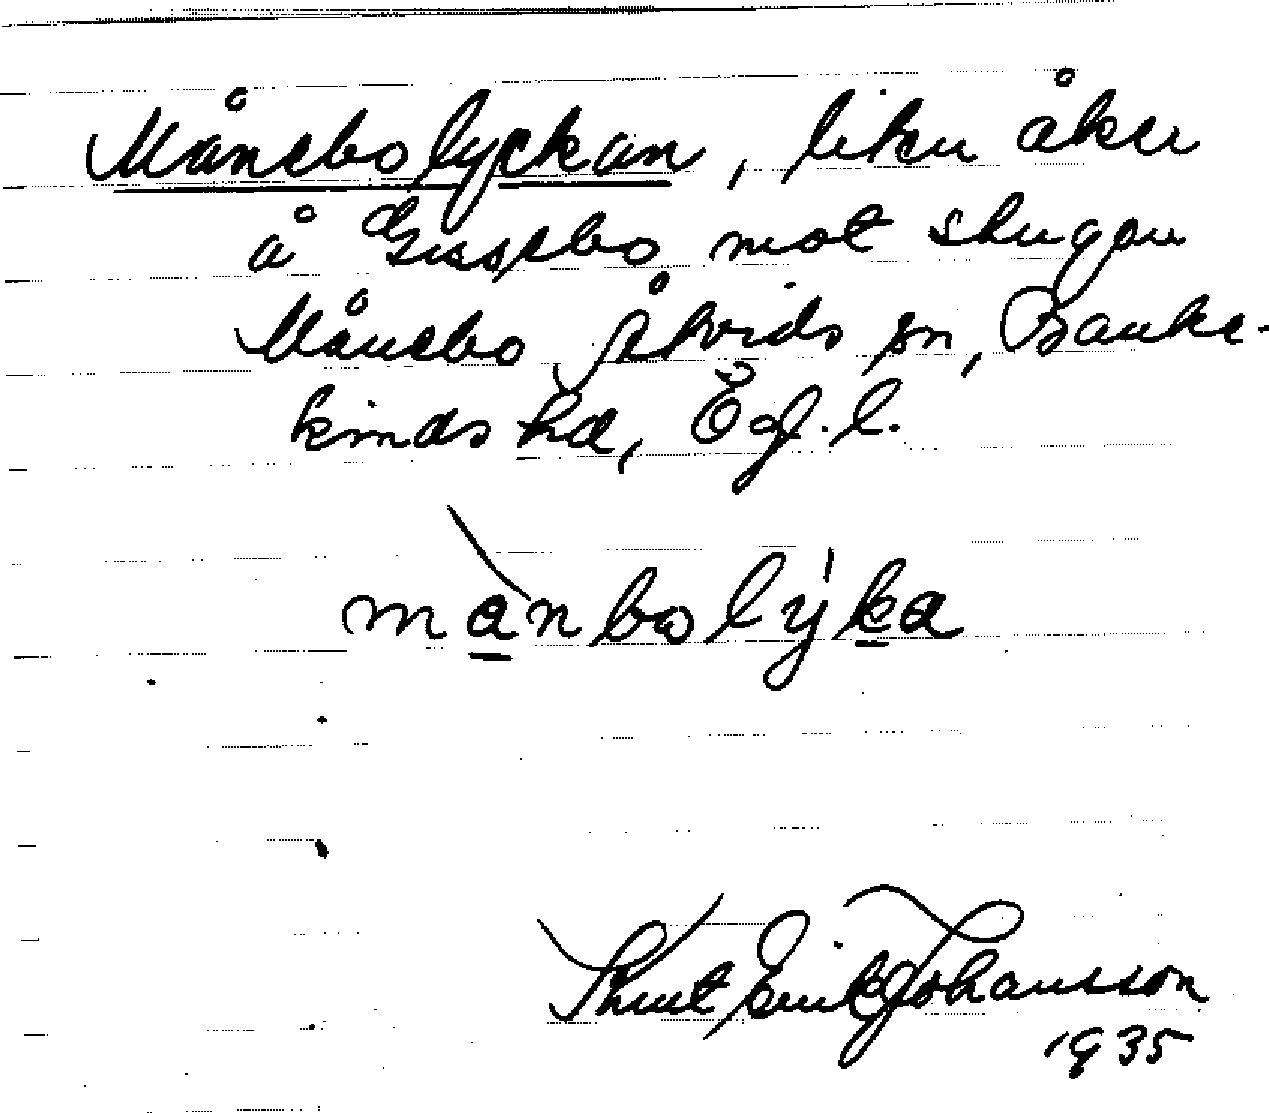 Månebolyckan, liten åker
å Gissebo mot stugan
Månebo, Åtvids sn, Banke-
kinds hd, Ög. l.
månboly̍ka
Knut Erik Johansson
1935